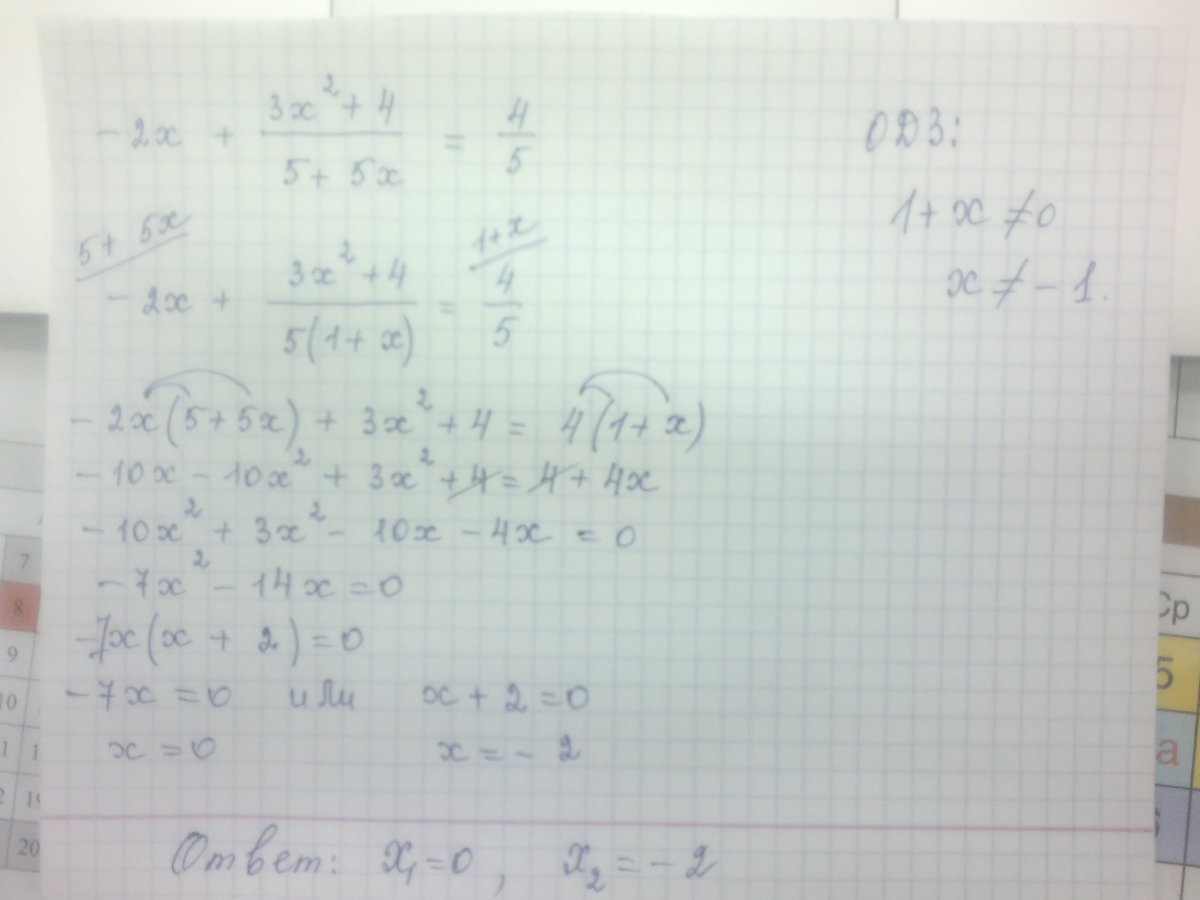 -2x + \frac{3x^2+4}{5+5x} = \frac{4}{5}
ОДЗ:
1+x ≠ 0
x ≠ -1.
5+5x
1+x
-2x + \frac{3x^2+4}{5(1+x)} = \frac{4}{5}
-2x(5+5x) + 3x^2 + 4 = 4(1+x)
-10x - 10x^2 + 3x^2 + 4 = 4 + 4x
-10x^2 + 3x^2 - 10x - 4x = 0
-7x^2 - 14x = 0
-7x(x + 2) = 0
-7x = 0 или x + 2 = 0
x = 0 x = -2
Ответ: x_1 = 0, x_2 = -2
7
8
9
10
20
Ср
5
а